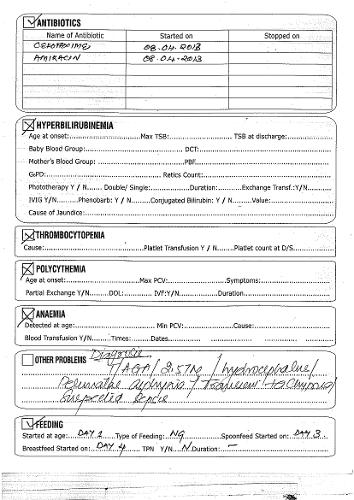 ANTIBIOTICS
Name of Antibiotic Started on Stopped on
CEFOTAXIME 08.04.2013
AMIKACIN 08.04.2013
HYPERBILIRUBINEMIA
Age at onset: Max TSB: TSB at discharge:
Baby Blood Group: DCT:
Mother's Blood Group: PBF
G6PD: Retics Count:
Phototherapy Y / N Double/ Single: Duration: Exchange Transf.:Y/N
IVIG Y/N Phenobarb: Y / N Conjugated Bilirubin: Y / N Value:
Cause of Jaundice:
THROMBOCYTOPENIA
Cause: Platlet Transfusion Y / N Platlet count at D/S
POLYCYTHEMIA
Age at onset: Max PCV: Symptoms:
Partial Exchange Y/N DOL: IVF:Y/N Duration
ANAEMIA
Detected at age: Min PCV: Cause:
Blood Transfusion Y/N Times: Dates
Diagnosis
OTHER PROBLEMS T/AGA/ 2.57kg / hydrocephalus/
Perinatal asphyxia / Transient
Suspected Sepsis
FEEDING
Started at age: DAY 2 Type of Feeding: NG Spoonfeed Started on: DAY 3
Breastfeed Started on: DAY 4 TPN Y/N N Duration: –